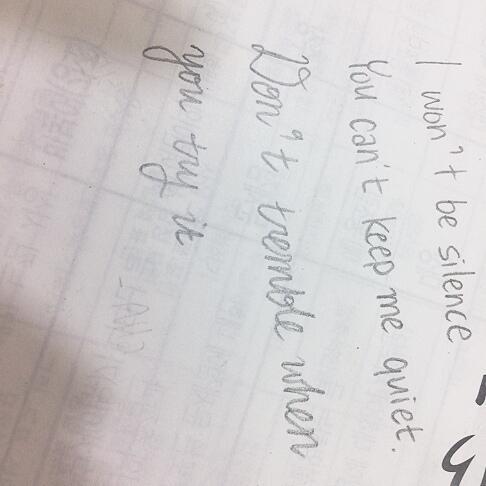 I won't be silence
You can't keep me quiet.
Don't tremble when
you try it